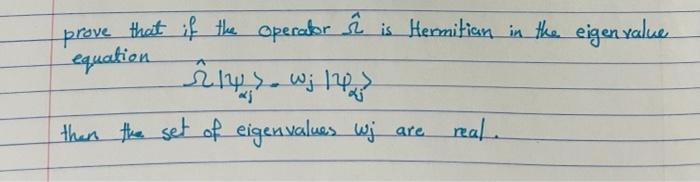 prove that if the operator Ω̂ is Hermitian in the eigenvalue
equation
Ω̂ |ψ_αj> = ωj |ψ_αj>
then the set of eigenvalues ωj are real.